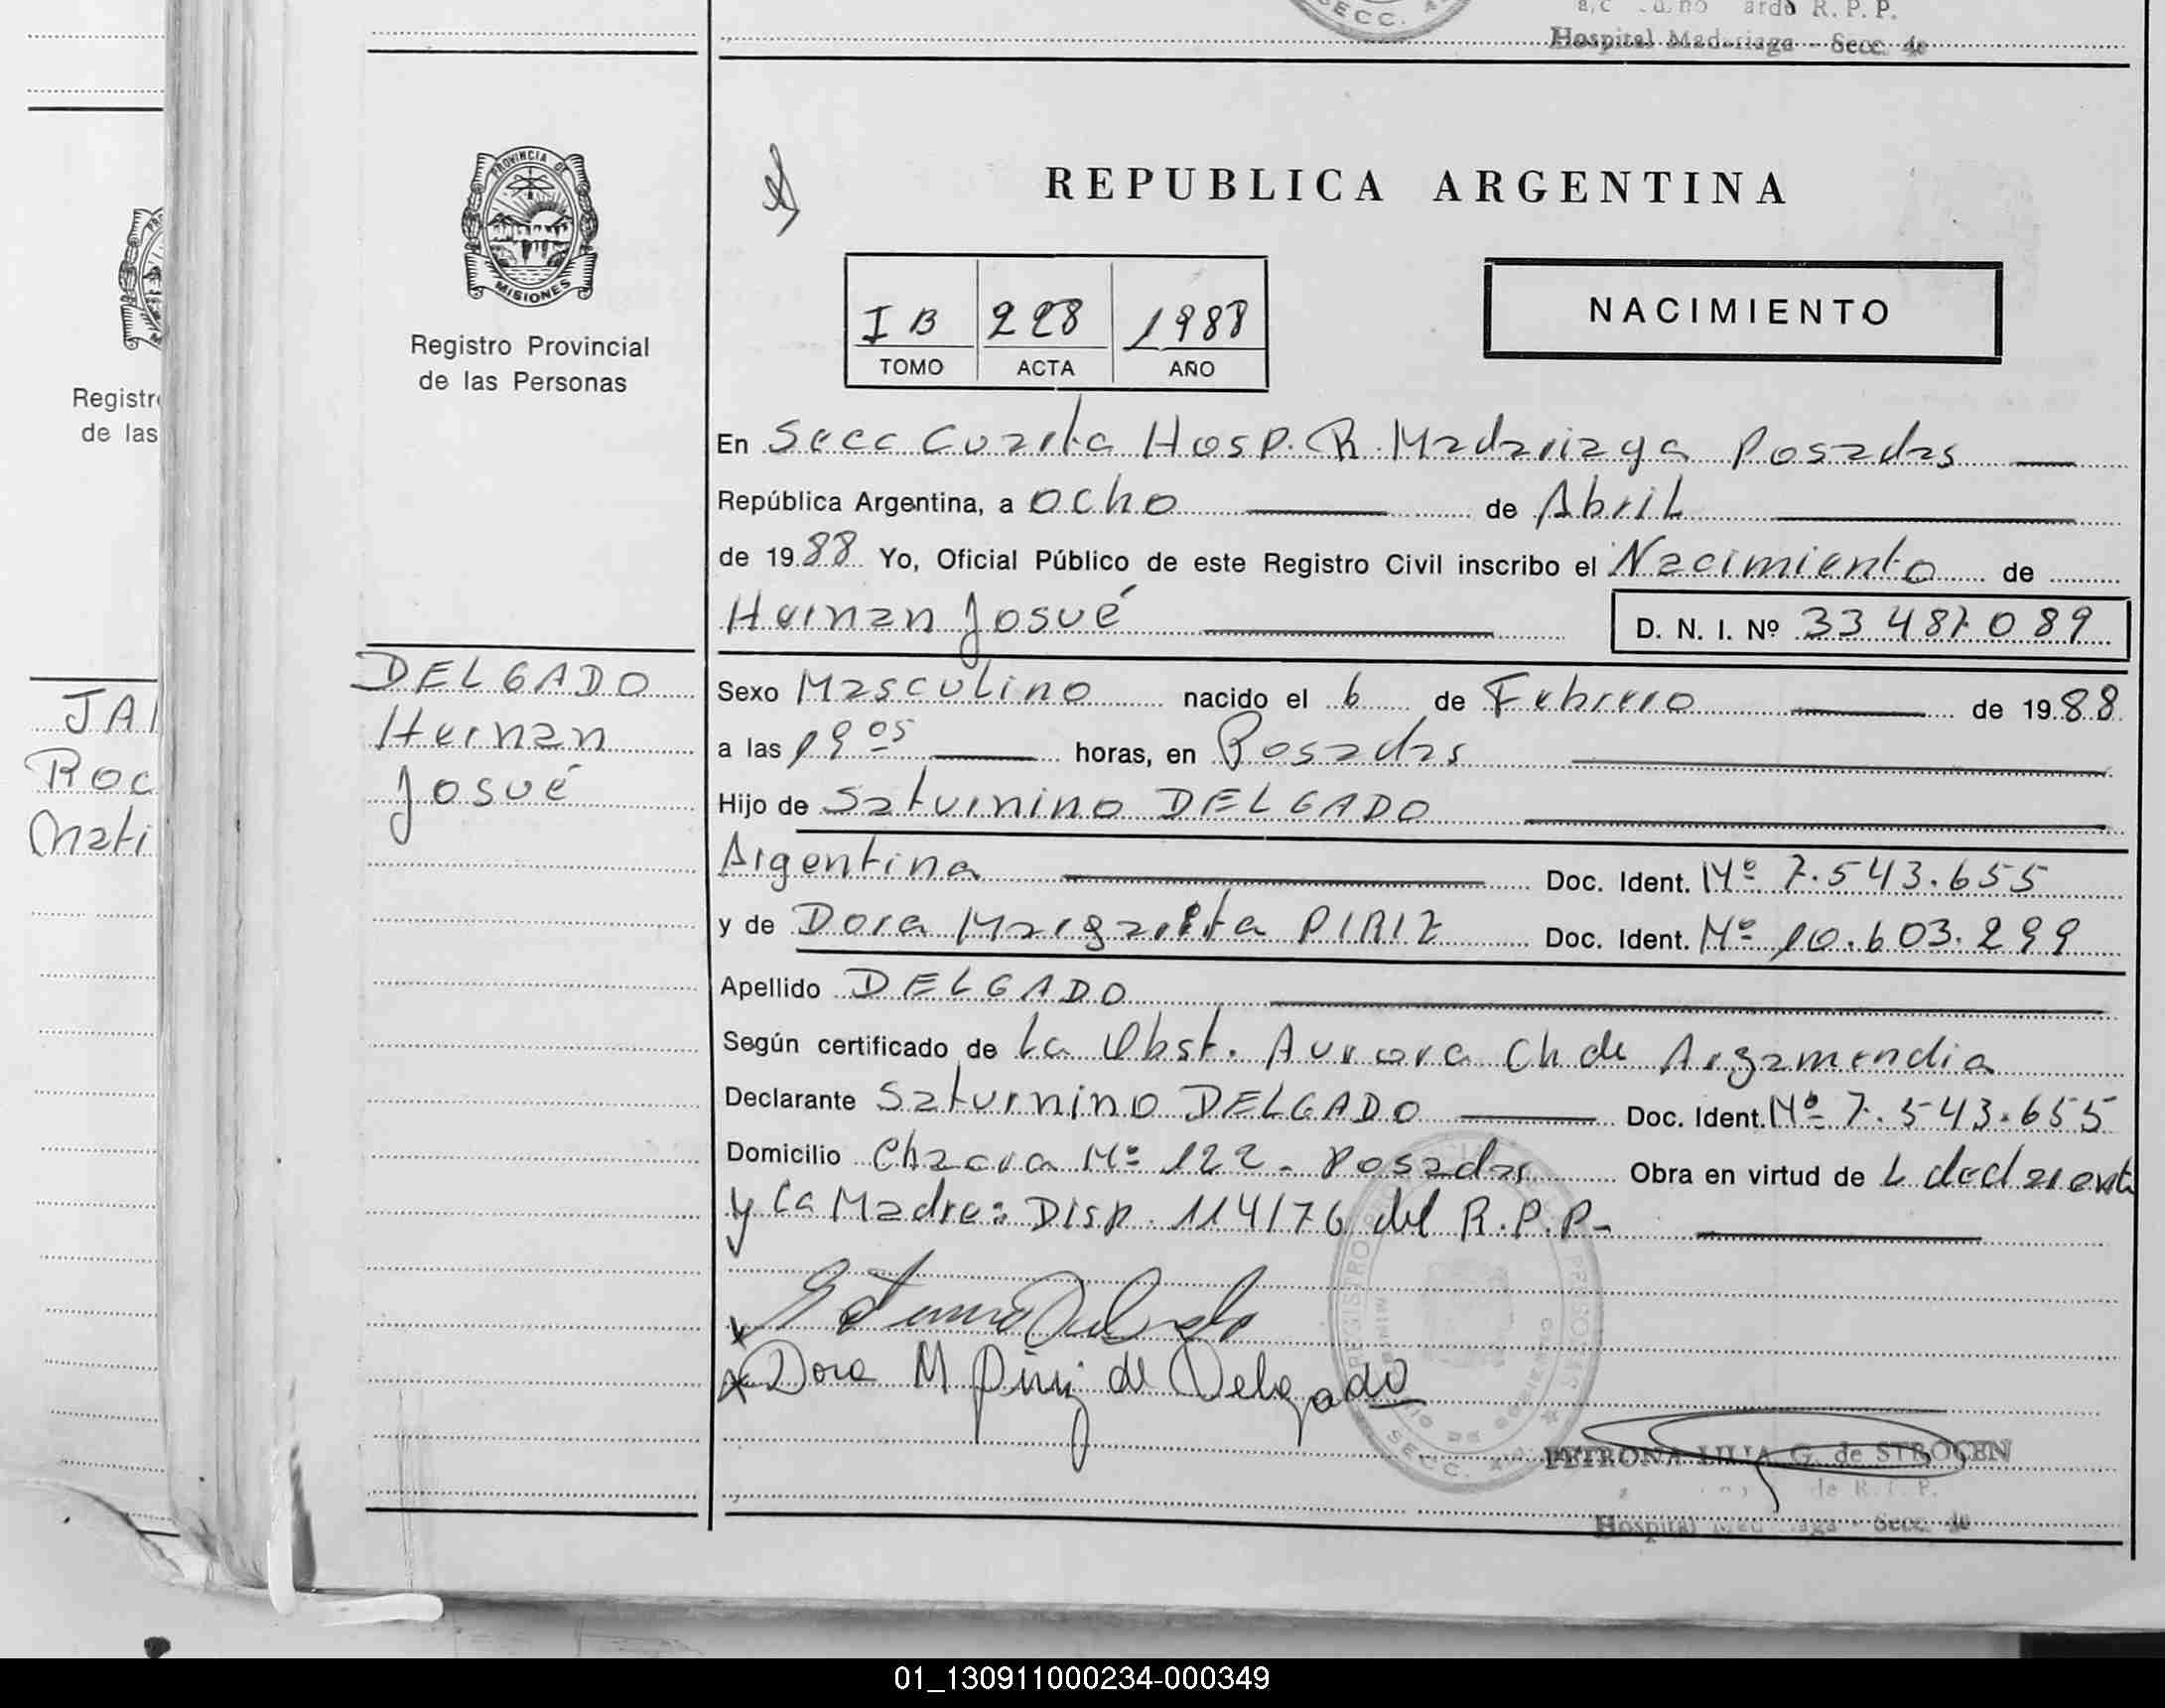 SECC.
R. P. P.
Hospital Madariaga - Secc. 4a
PROVINCIA DE
MISIONES
Registro Provincial
de las Personas
Registr
de las
REPUBLICA ARGENTINA
I B 228 1988
TOMO ACTA AÑO
NACIMIENTO
En Secc Cuarta Hosp. R. Madariaga Posadas
República Argentina, a ocho de Abril
de 1988 Yo, Oficial Público de este Registro Civil inscribo el Nacimiento de
Hernan Josué D. N. I. Nº 33 487 089
JA
Roc
Mati
DELGADO
Hernan
Josué
Sexo Masculino nacido el 6 de Febrero de 1988
a las 19 05 horas, en Posadas
Hijo de Saturnino DELGADO
Argentina Doc. Ident. Mº 7.543.655
y de Dora Margarita PIRIZ Doc. Ident. Mº 10.603.299
Apellido DELGADO
Según certificado de La Obst. Aurora Ch de Argamendia
Declarante Saturnino DELGADO Doc. Ident. Mº 7.543.655
Domicilio Chacra Nº 122 - Posadas Obra en virtud de L declarante
y La Madre: Disp. 114/76 del R.P.P.-
Dora M Piriz de Delgado
REGISTRO
SECC.
PETRONA LILIA G. de STROCEN
de R. P. P.
Hospital Madariaga - Secc. 4a
01_130911000234-000349